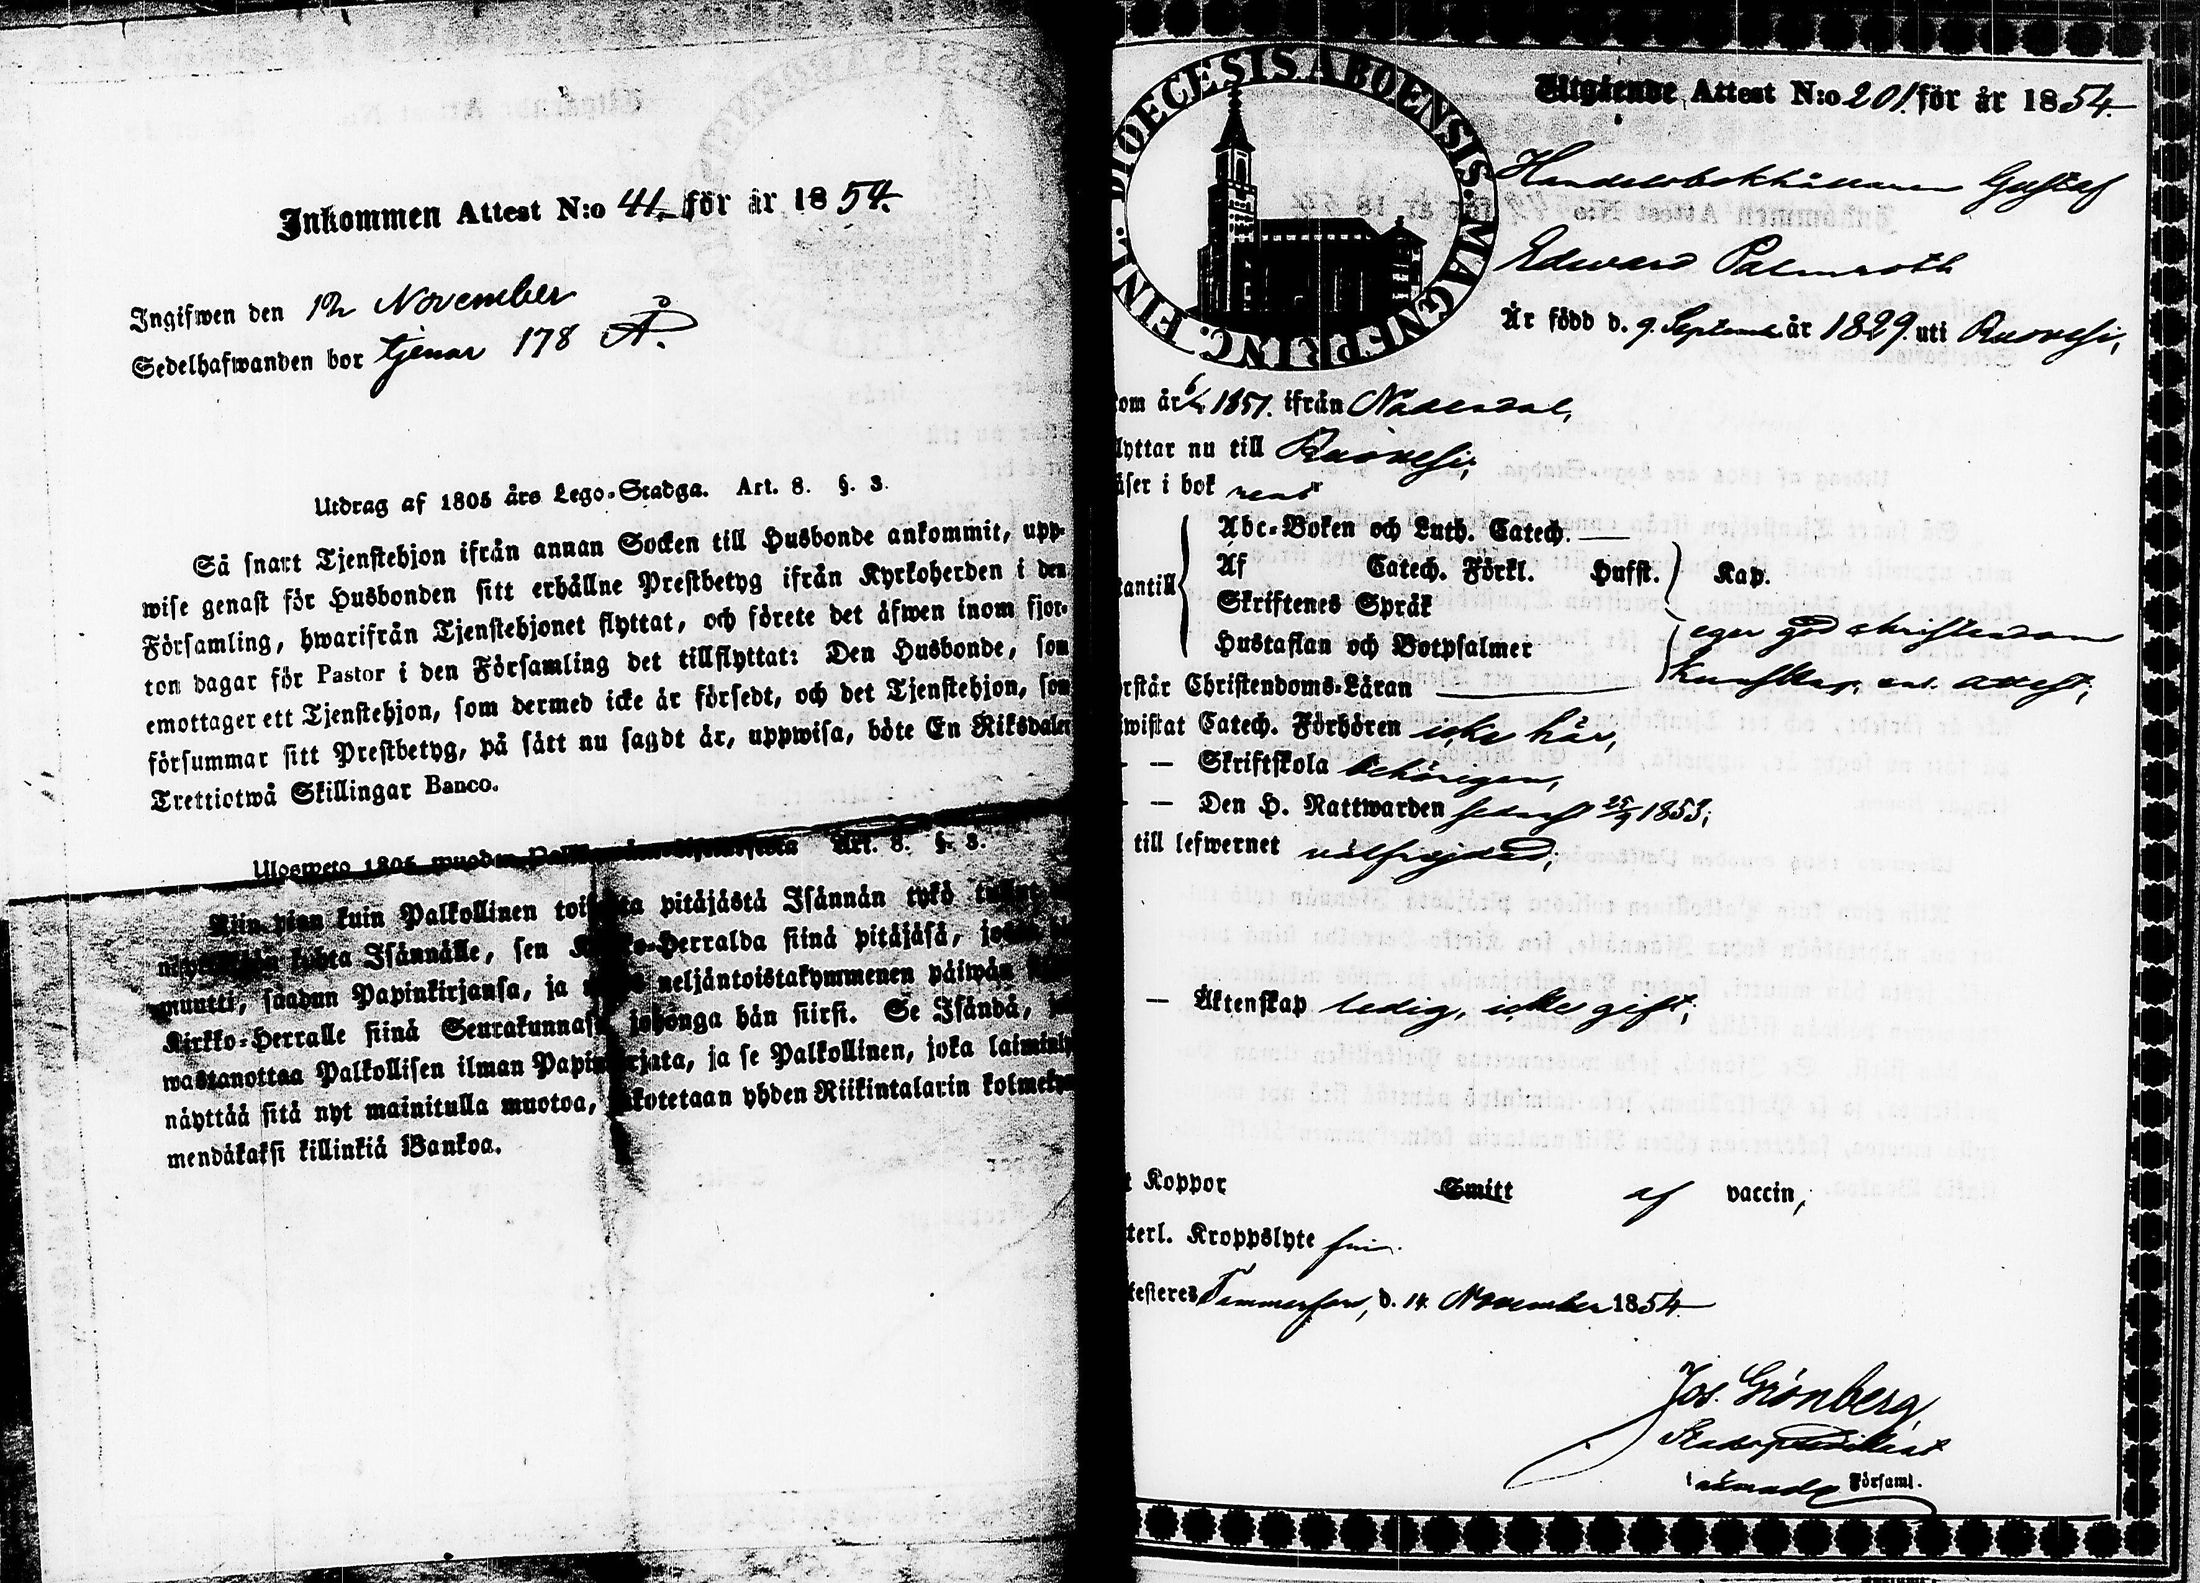 Inkommen Attest N:o 41. för år 1854.
Ingifwen den 12 November
Sedelhafwanden bor tjenar 178 Å.
Utdrag af 1805 års Lego-Stadga. Art. 8. §. 3.
Så snart Tjenstehjon ifrån annan Socken till Husbonde ankommit, upp-
wise genast för Husbonden sitt erhållne Prestbetyg ifrån Kyrkoherden i den
Församling, hwarifrån Tjenstehjonet flyttat, och förete det äfwen inom fjor-
ton dagar för Pastor i den Församling det tillflyttat: Den Husbonde, som
emottager ett Tjenstehjon, som dermed icke är försedt, och det Tjenstehjon, som
försummar sitt Prestbetyg, på sätt nu sagdt är, uppwisa, böte En Riksdaler
Trettiotwå Skillingar Banco.
Ulosweto 1805 wuoden Art. 8. §. 3.
Niin pian kuin Palkollinen pitäjästä Isännän tykö
Isännälle, sen siinä pitäjäsä,
muutti, saadun Papinkirjansa, ja neljäntoistakymmenen päiwän
Kirkko-Herralle siinä Seurakunnasa johonga hän siirsi. Se Isändä,
wastanottaa Palkollisen ilman ja se Palkollinen, joka
näyttää sitä nyt mainitulla muotoa, yhden Riikintalarin kolmekym
mendäkaksi killinkiä Bankoa.
DIOECESIS ABOENSIS. MAGNI PRINC. FINL.
Utgående Attest N:o 201. för år 1854.
Handelsbokhållaren Gustaf
Edward Palmroth
Är född d. 9 September år 1829. uti Ruovesi,
om år 1851. ifrån Nådendal,
lyttar nu till Ruovesi;
äser i bok rent
Abc-Boken och Luth. Catech. —
Af Catech. Förkl. Hufst. Kap.
tantill Skriftenes Språk
Hustaflan och Botpsalmer eger god christendoms
rstår Christendoms-Läran kunskap, enl. attest;
wistat Catech. Förhören icke här,
— Skriftskola behörigen,
— Den H. Nattwarden senast 25/9 1853;
till lefwernet välfrejdad;
— Äktenskap ledig, icke gift;
Koppor Smitt af vaccin,
terl. Kroppslyte fri.
testeres Tammerfors, d. 14 November 1854
Jos. Grönberg,
Stadspredikant
Församl.